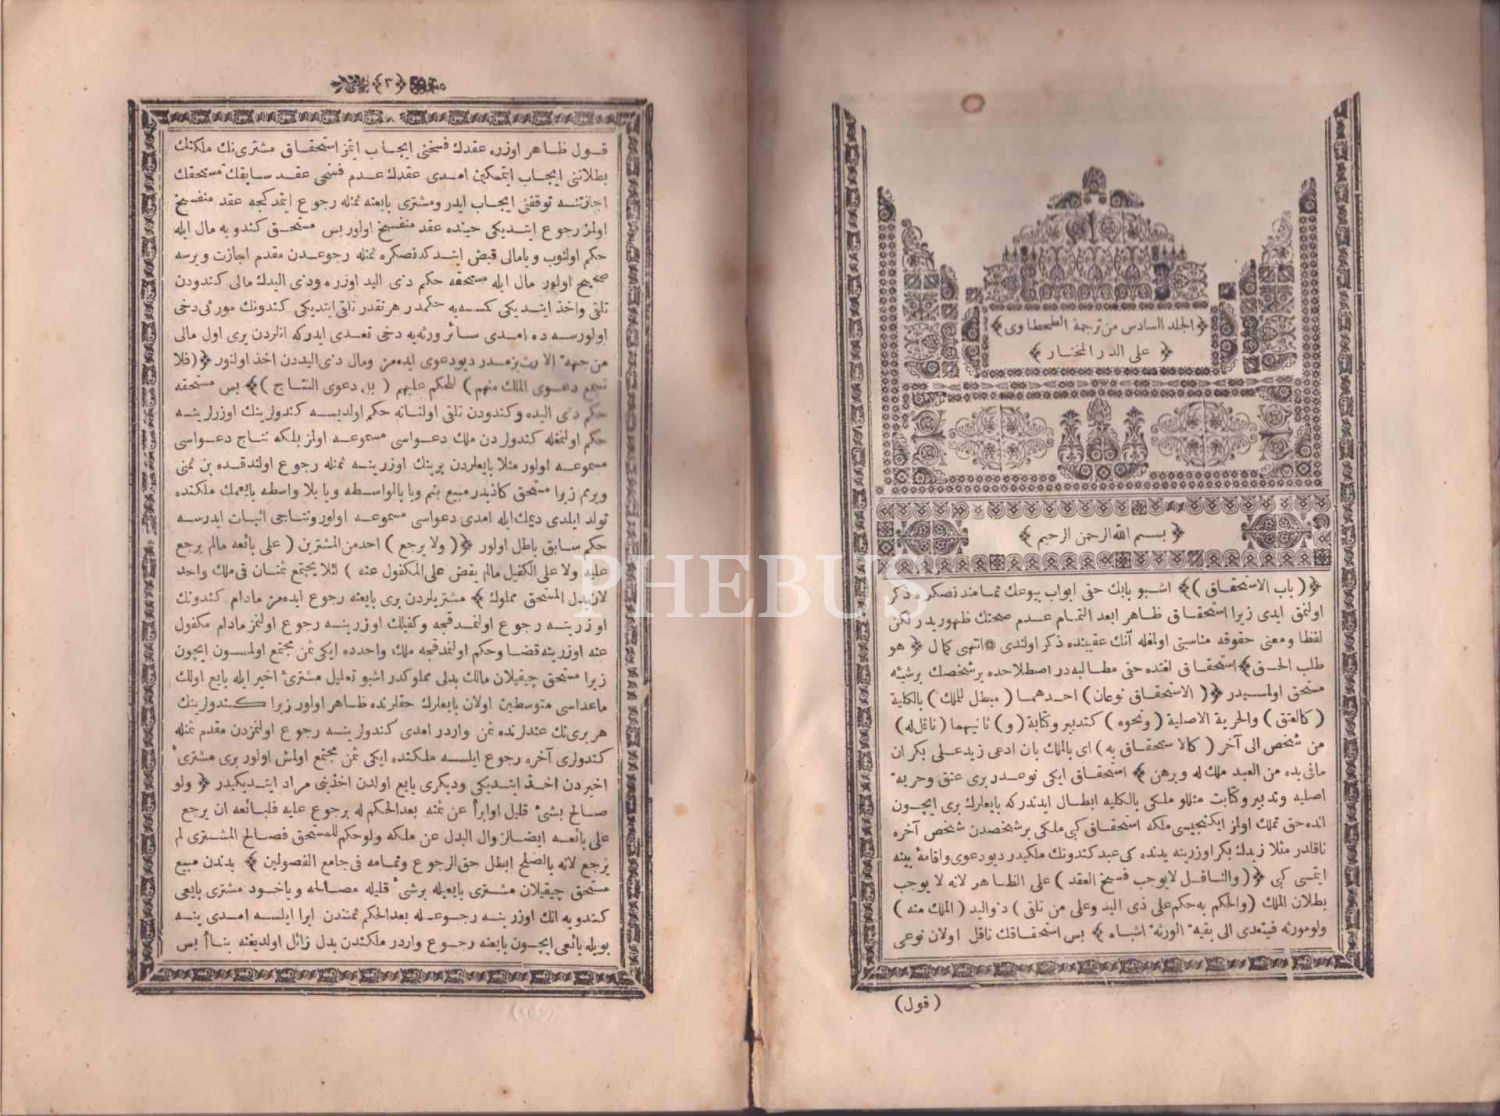 ﴿الجلد السادس من ترجمة الطحطاوى﴾
﴿ على الدر المختار ﴾
﴿ بسم الله الرحمن الرحيم ﴾
﴿( باب الاستحقاق )﴾ اشبو بابك حق ابواب بيوعك تمامندنصكره ذكر
اولنمق ايدى زيرا استحقاق ظاهر ابعد التمام عدم صحتك ظهوريدر لكن
لفظا ومعنى حقوقه مناسبتى اولمغله آنك عقيبنده ذكر اولندى * انتهى كمال ﴿ هو
طلب الحق﴾ استحقاق لغتده حق مطالبه در اصطلاحده برشخصك برشيئه
مستحق اولمسيدر ﴿( الاستحقاق نوعان ) احدهما ( مبطل للملك ) بالكلية
( كالعتق ) والحرية الاصلية ( ونحوه ) كتدبير وكتابة ( و ) ثانيهما ( ناقل له )
من شخص الى آخر ( كالاستحقاق به ) اى بالملك بان ادعى زيد على بكر ان
مافى يده من العبد ملك له وبرهن ﴾ استحقاق ايكى نوعدر برى عتق وحريه
اصليه وتدبير وكتابت مثللو ملكى بالكليه ابطال ايدندر كه بايعلرك برى ايچون
انده حق تملك اولنز ايكنجيسى ملكه استحقاق كبى ملكى برشخصدن شخص آخره
ناقلدر مثلا زيدك بكر اوزرينه يدنده كى عبد كندونك ملكيدر ديو دعوى واقامۀ بينه
ايتمسى كبى ﴿( والناقل لايوجب فسخ العقد ) على الظاهر لانه لا يوجب
بطلان الملك ( والحكم به حكم على ذى اليد وعلى من تلقى ) ذو اليد ( الملك منه )
ولو مورثه فيتعدى الى بقيه الورثه اشباه ﴾ بس استحقاقك ناقل اولان نوعى
( قول )
﴿٣﴾
قول ظاهر اوزره عقدك فسخنى ايجاب ايتمز استحقاق مشترىنك ملكنك
بطلانى ايجاب ايتمكين امدى عقدك عدم فسخى عقد سابقك مستحقك
اجازتنه توقفنى ايجاب ايدر ومشترى بايعنه ثمنله رجوع ايتمدكجه عقد منفسخ
اولنز رجوع ايتديكى حينده عقد منفسخ اولور بس مستحق كندويه مال ايله
حكم اولنوب ويا مالى قبض ايتدكدنصكره ثمنله رجوعدن مقدم اجازت ويرسه
صحيح اولور مال ايله مستحقه حكم ذى اليد اوزره وذى اليدك مالى كندودن
تلقى واخذ ايتديكى كمسه يه حكمدر هر نقدر تلقى ايتديكى كندونك مورثى دخى
اولورسه ده امدى سائر ورثه يه دخى تعدى ايدر كه انلردن برى اول مالى
من جهة الارث بزمدر ديو دعوى ايده من ومال ذى اليددن اخذ اولنور ﴿( فلا
تسمع دعوى الملك منهم ) للحكم عليهم ( بل دعوى النتاج )﴾ بس مستحقه
حكم ذى اليده وكندودن تلقى اولنانه حكم اولديسه كندولرينك اوزرلرينه
حكم اولنمغله كندولردن ملك دعواسى مسموعه اولنز بلكه نتاج دعواسى
مسموعه اولور مثلا بايعلردن برينك اوزرينه ثمنله رجوع اولندقده بن ثمنى
ويرمم زيرا مستحق كاذبدر مبيع بنم ويا بالواسطه ويا بلا واسطه بايعمك ملكنده
تولد ايلدى ديمك ايله امدى دعواسى مسموعه اولور ونتاجى اثبات ايدرسه
حكم سابق باطل اولور ﴿( ولا يرجع ) احد من المشترين ( على بائعه مالم يرجع
عليه ولا على الكفيل مالم يقض على المكفول عنه ) لئلا يجتمع ثمنان فى ملك واحد
لان بدل المستحق مملوك ﴾ مشتريلردن برى بايعنه رجوع ايده من مادام كندونك
اوزرينه رجوع اولنمدقجه وكفيلك اوزرينه رجوع اولنمز مادام مكفول
عنه اوزرينه قضا وحكم اولنمدقجه ملك واحدده ايكى ثمن مجتمع اولمسون ايچون
زيرا مستحق چيقيلان مالك بدلى مملوكدر اشبو تعليل مشترئ اخير ايله بايع اولك
ماعداسى متوسطين اولان بايعلرك حقلرنده ظاهر اولور زيرا كندولرينك
هر برىنك عندلرنده ثمن واردر امدى كندولرينه رجوع اولنمزدن مقدم ثمنله
كندولرى آخره رجوع ايلسه ملكنده ايكى ثمن مجتمع اولمش اولور برى مشترئ
اخيردن اخذ ايتديكى وديكرى بايع اولدن اخذينى مراد ايتديكيدر ﴿ ولو
صالح بشئ قليل اوابرأ عن ثمنه بعد الحكم له برجوع عليه فلبائعه ان يرجع
على بائعه ايضا لزوال البدل عن ملكه ولو حكم للمستحق فصالح المشترى لم
يرجع لانه بالصلح ابطل حق الرجوع وتمامه فى جامع الفصولين ﴾ يدندن مبيع
مستحق چيقيلان مشترى بايعيله برشئ قليله مصالحه وياخود مشترى بايعى
كندويه انك اوزرينه رجوعله بعد الحكم ثمندن ابرا ايلسه امدى ينه
بويله بائعى ايچون بايعنه رجوع واردر ملكندن بدل زائل اولديغنه بناأ بس